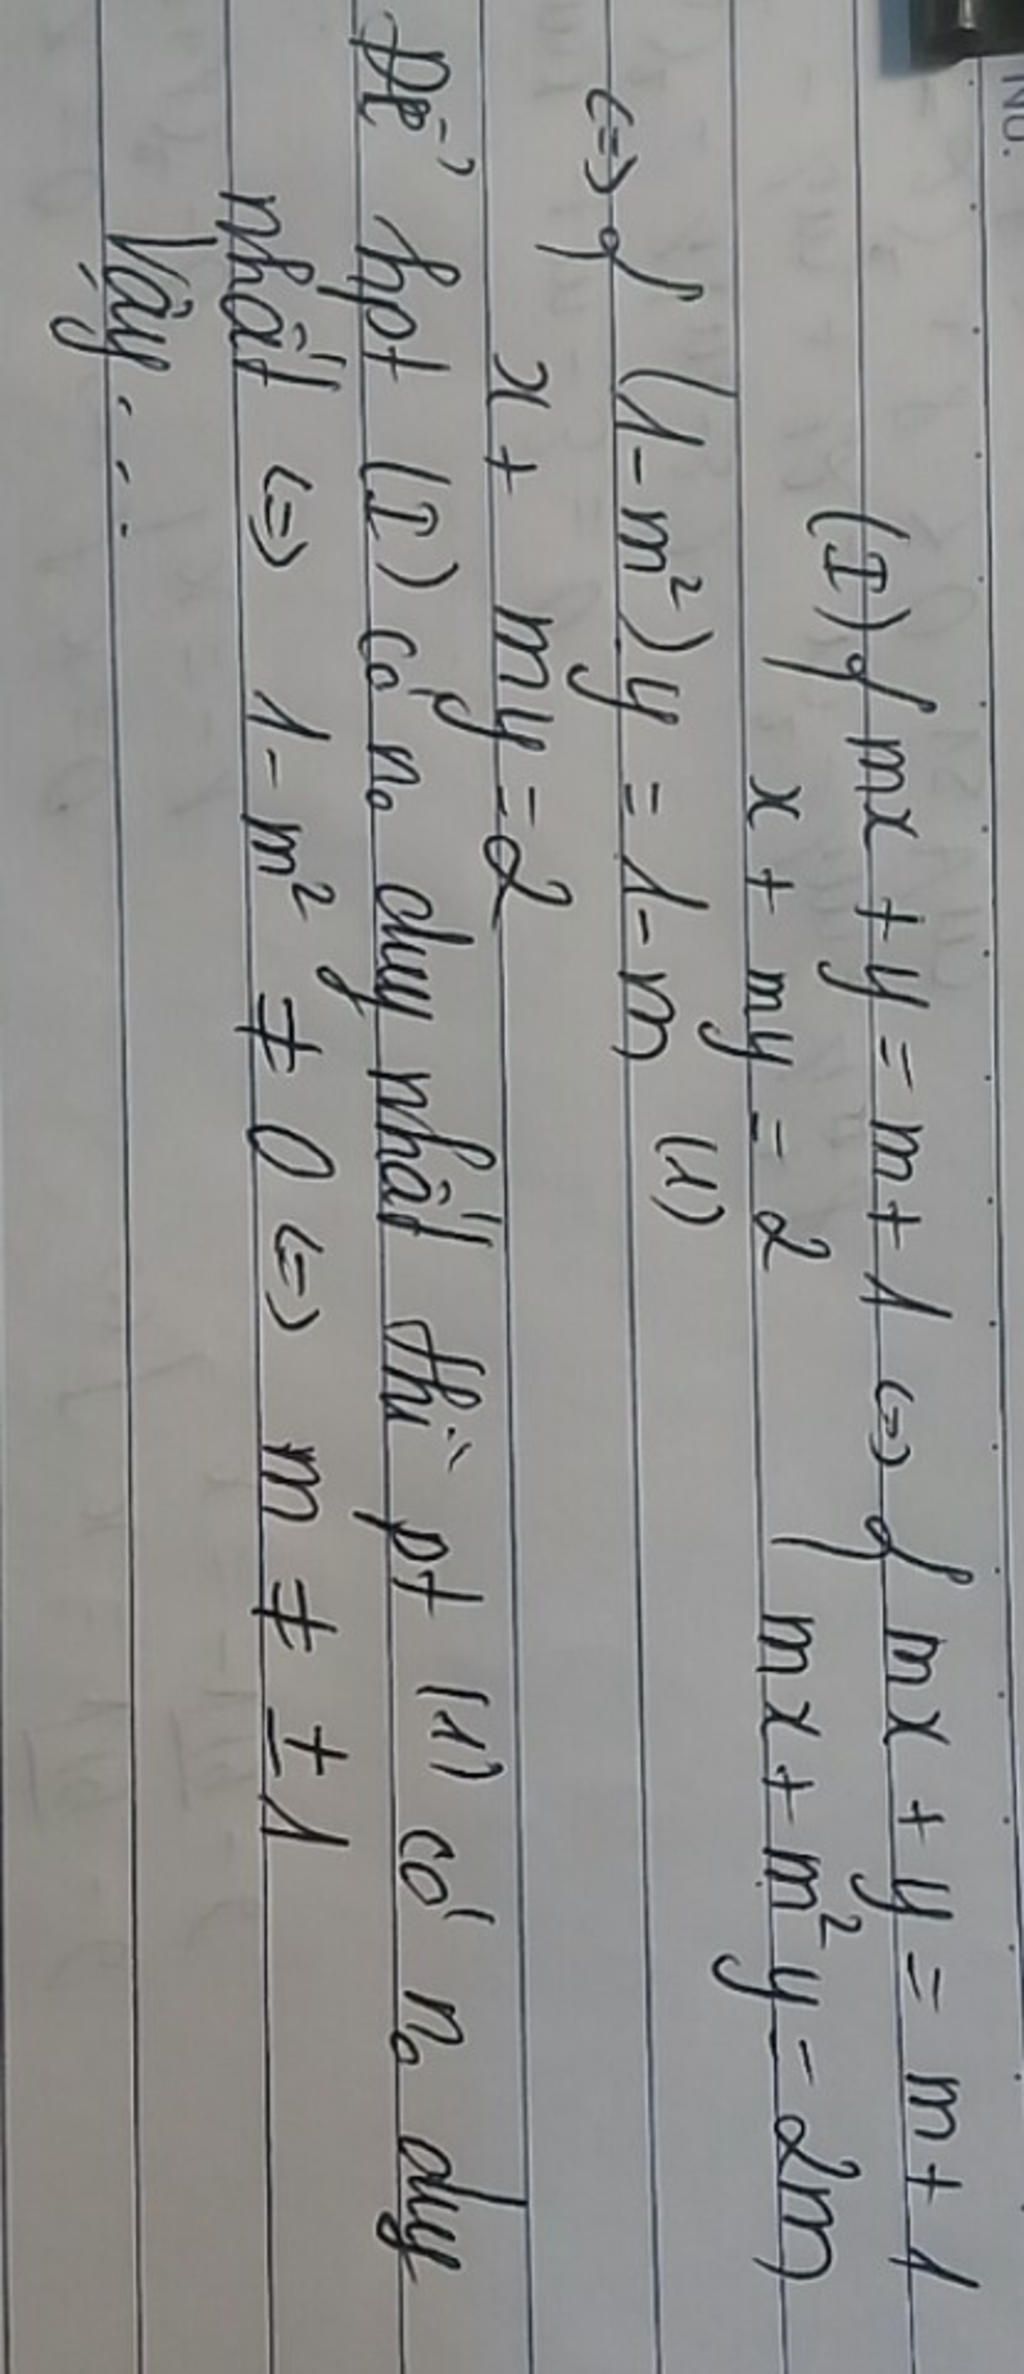 No.
(I) { mx + y = m + 1 <=> { mx + y = m + 1
x + my = 2 mx + m²y = 2m
<=> { (1 - m²)y = 1 - m (1)
x + my = 2
Để hpt (I) có no duy nhất thì pt (1) có no duy
nhất <=> 1 - m² ≠ 0 <=> m ≠ ± 1
Vậy....